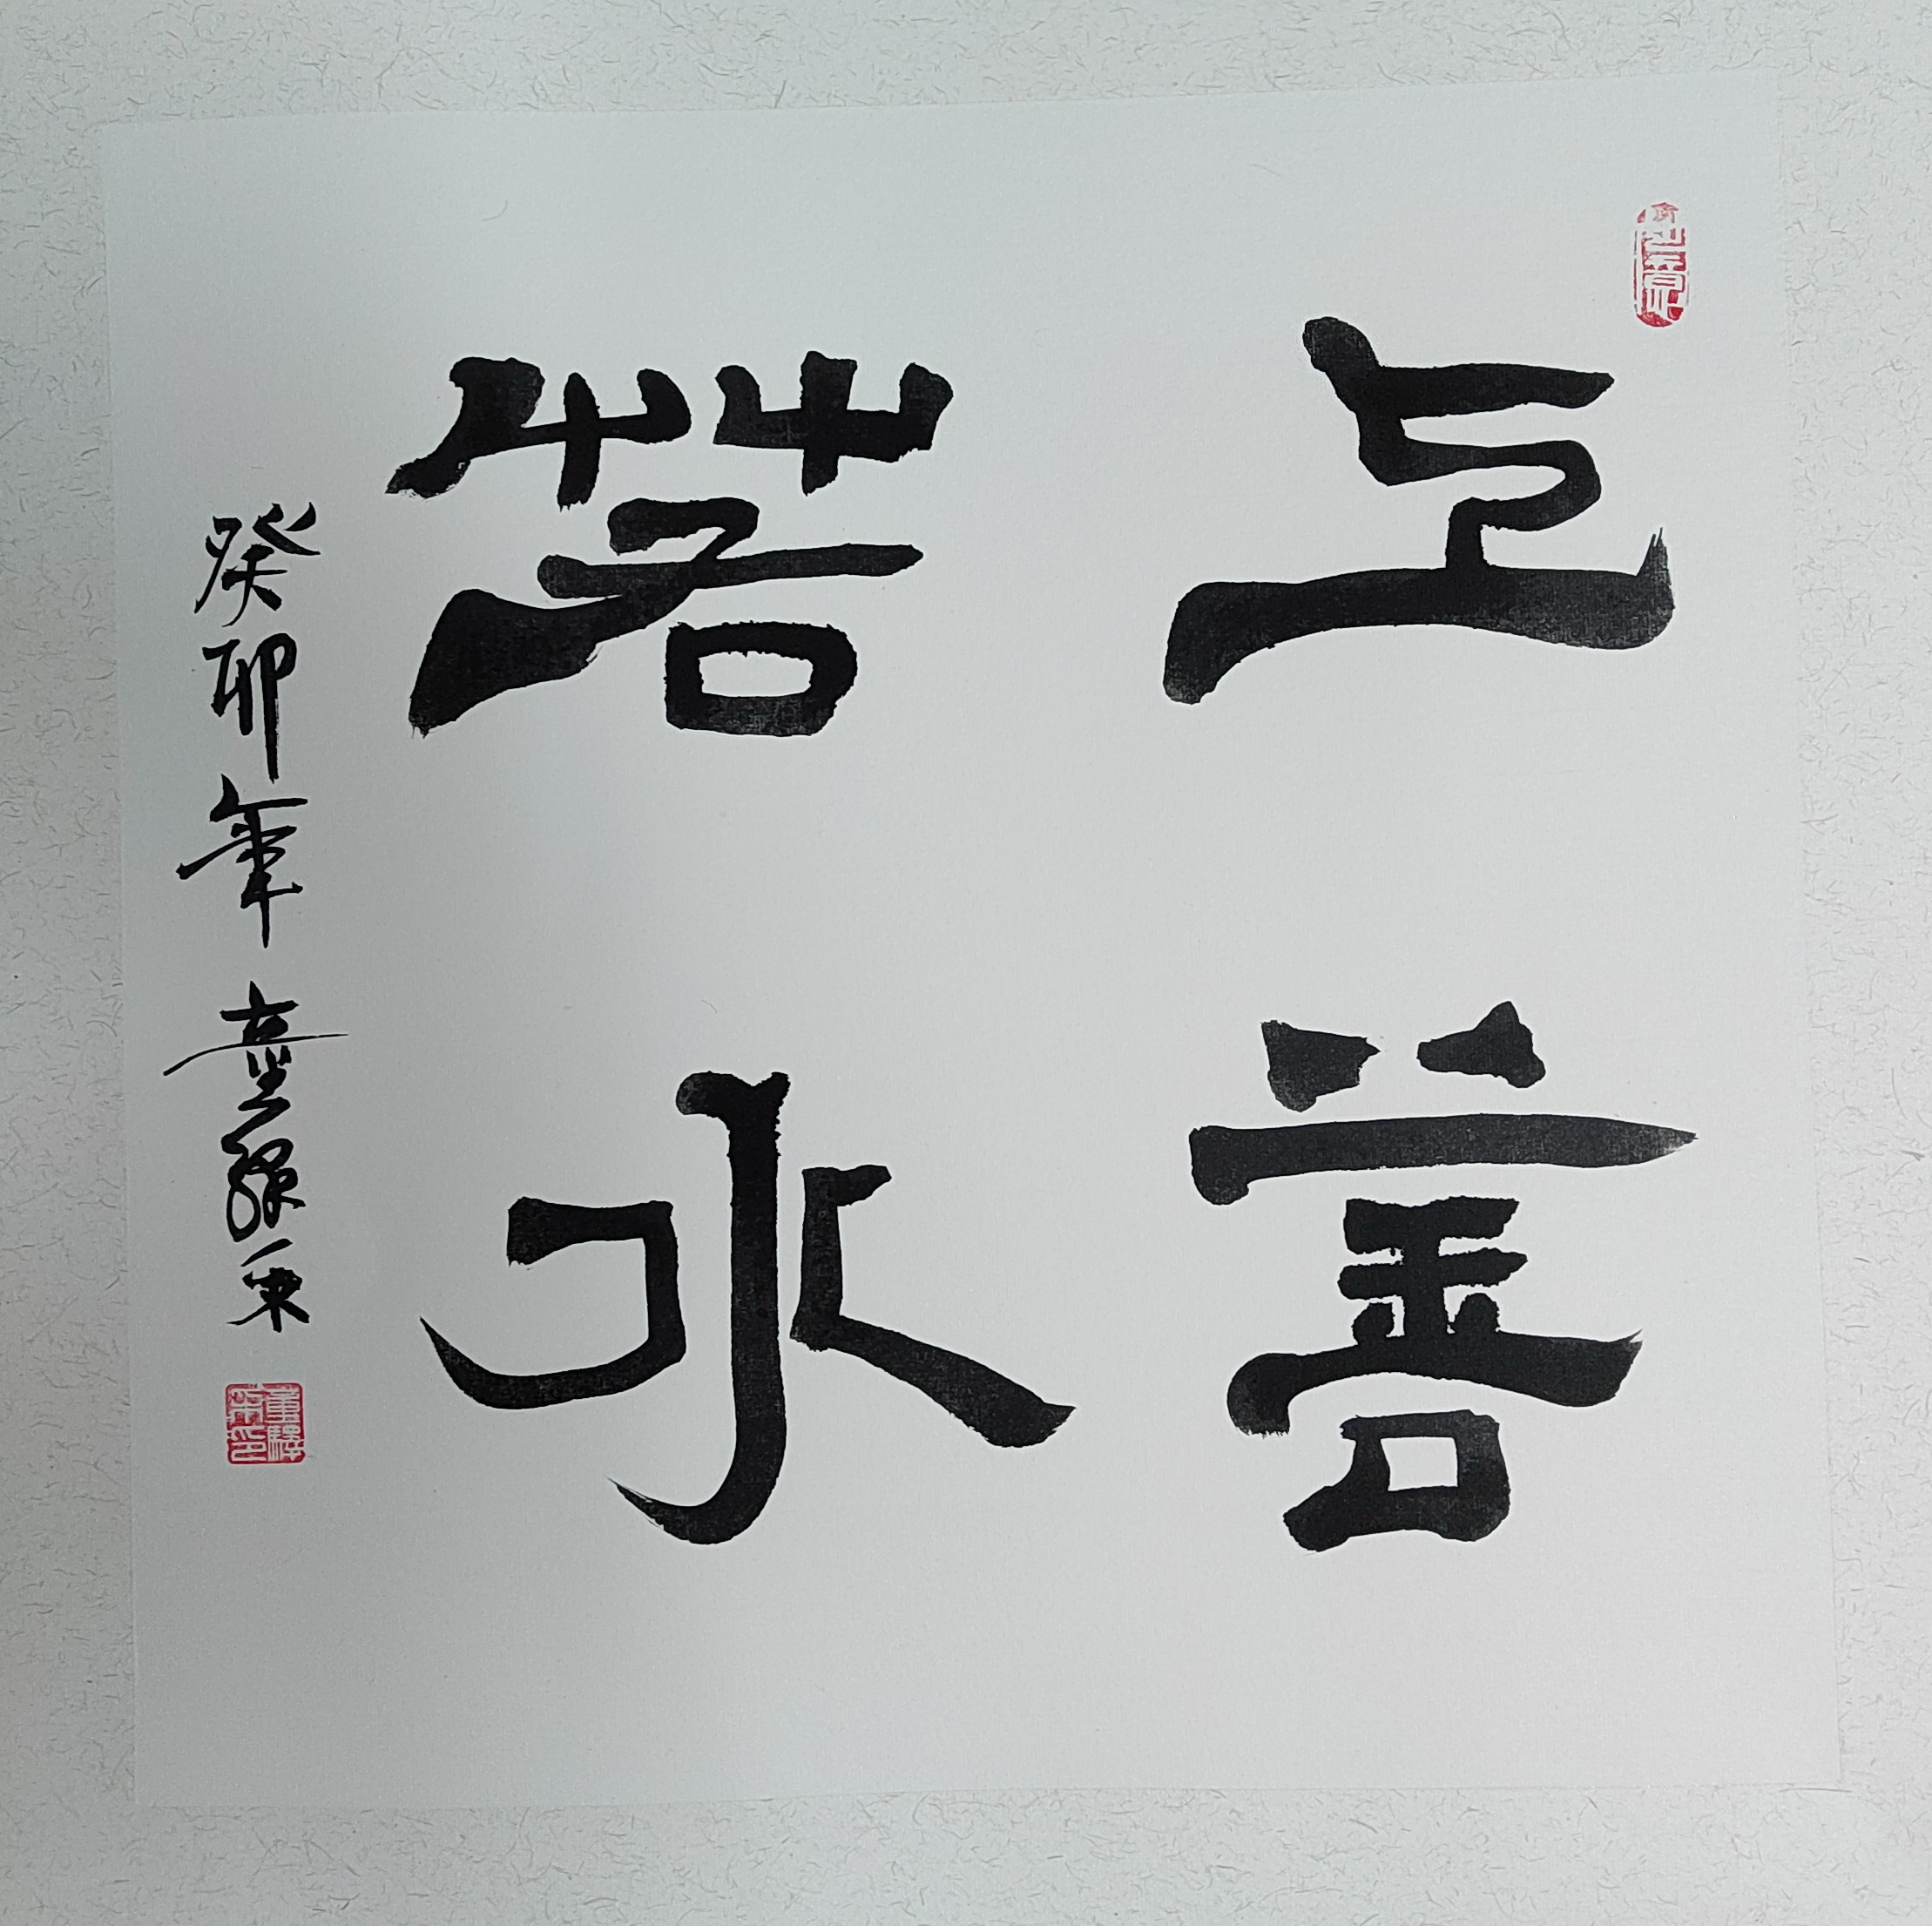 上善
若水
癸卯年